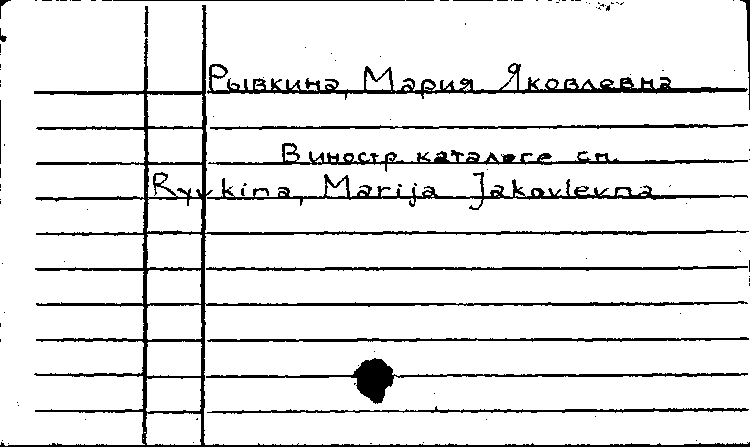 Рывкина, Мария Яковлевна
В иностр. каталоге см.
Ryvkina, Marija Jakovlevna